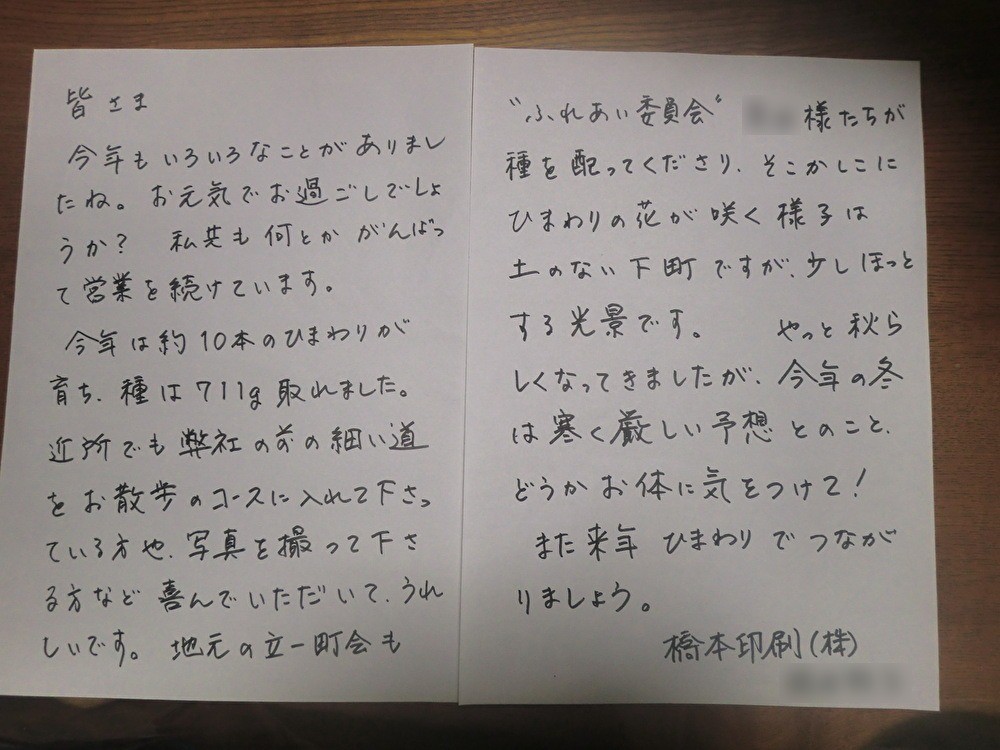 皆さま
今年もいろいろなことがありまし
たね。お元気でお過ごしでしょ
うか？ 私共も何とかがんばっ
て営業を続けています。
今年は約10本のひまわりが
育ち、種は711g取れました。
近所でも弊社の前の細い道
をお散歩のコースに入れて下さっ
ている方や、写真を撮って下さ
る方など喜んでいただいて、うれ
しいです。地元の立一町会も
“ふれあい委員会” 様たちが
種を配ってくださり、そこかしこに
ひまわりの花が咲く様子は
土のない下町ですが、少しほっと
する光景です。 やっと秋ら
しくなってきましたが、今年の冬
は寒く厳しい予想とのこと、
どうかお体に気をつけて！
また来年ひまわりでつなが
りましょう。
橋本印刷（株）